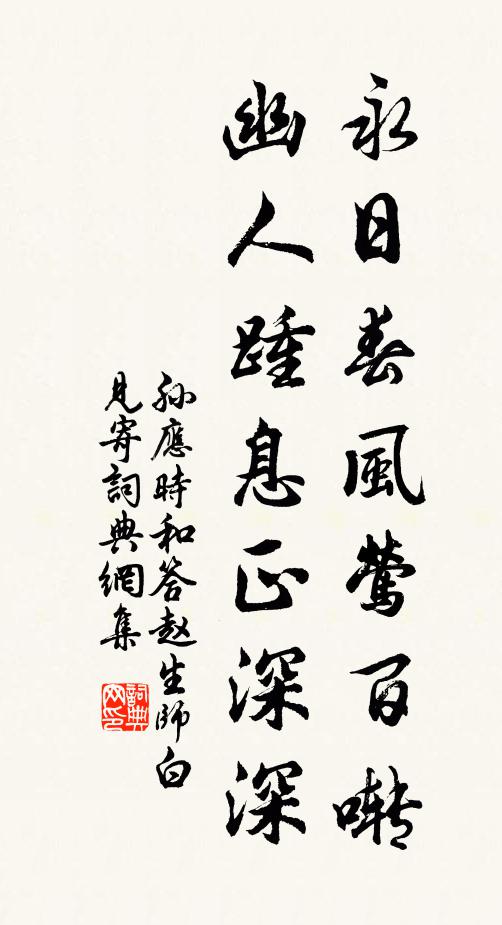 永日春風鶯百囀
幽人踵息正深深
孙應時和答赵生師白
見寄詞典網集
詞典网印